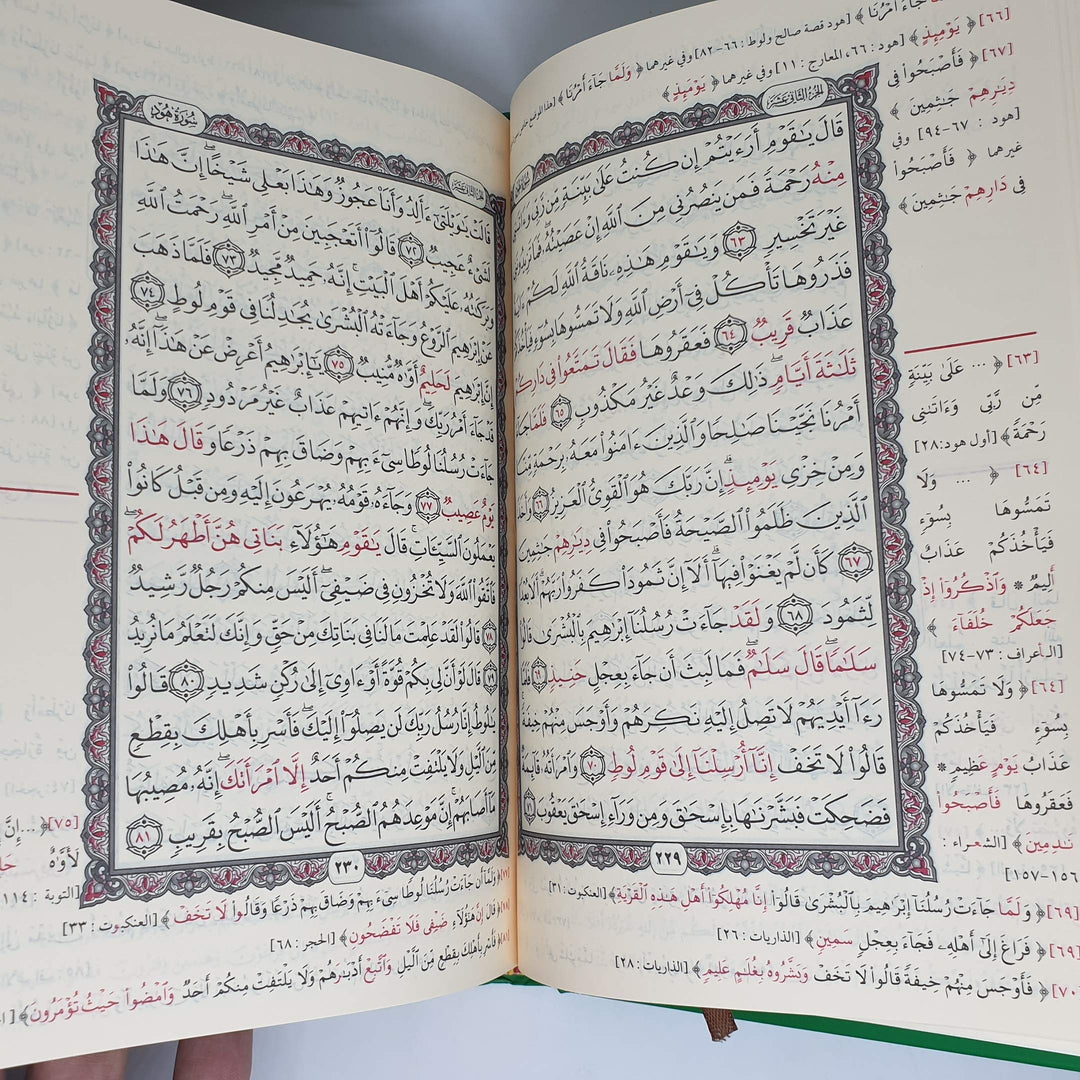 جَاءَ أَمْرُنَا ﴾ [هود قصة صالح ولوط : ٦٦-٨٢] وفي غيرهما ﴿ وَلَمَّا جَاءَ أَمْرُنَا ﴾
[٦٦] ﴿ يَوْمِئِذٍ ﴾ [هود : ٦٦، المعارج : ١١] وفي غيرهما ﴿ يَوْمَئِذٍ ﴾
[٦٧] ﴿ فَأَصْبَحُوا۟ فِى
دِيَٰرِهِمْ جَٰثِمِينَ ﴾
[هود : ٦٧-٩٤] وفي
غيرهما ﴿ فَأَصْبَحُوا۟
فِى دَارِهِمْ جَٰثِمِينَ ﴾
الجزء الثاني عشر
قَالَ يَٰقَوْمِ أَرَءَيْتُمْ إِن كُنتُ عَلَىٰ بَيِّنَةٍ مِّن رَّبِّى
مِنْهُ رَحْمَةً فَمَن يَنصُرُنِى مِنَ ٱللَّهِ إِنْ عَصَيْتُهُۥ فَمَا تَزِيدُونَنِى
غَيْرَ تَخْسِيرٍ ٦٣ وَيَٰقَوْمِ هَٰذِهِۦ نَاقَةُ ٱللَّهِ لَكُمْ
فَذَرُوهَا تَأْكُلْ فِىٓ أَرْضِ ٱللَّهِ وَلَا تَمَسُّوهَا بِسُوٓءٍ
عَذَابٌ قَرِيبٌ ٦٤ فَعَقَرُوهَا فَقَالَ تَمَتَّعُوا۟ فِى دَارِكُمْ
ثَلَٰثَةَ أَيَّامٍ ذَٰلِكَ وَعْدٌ غَيْرُ مَكْذُوبٍ ٦٥ فَلَمَّا
أَمْرُنَا نَجَّيْنَا صَٰلِحًا وَٱلَّذِينَ ءَامَنُوا۟ مَعَهُۥ بِرَحْمَةٍ مِّنَّا
وَمِنْ خِزْىِ يَوْمِئِذٍ إِنَّ رَبَّكَ هُوَ ٱلْقَوِىُّ ٱلْعَزِيزُ ٦٦
ٱلَّذِينَ ظَلَمُوا۟ ٱلصَّيْحَةُ فَأَصْبَحُوا۟ فِى دِيَٰرِهِمْ جَٰثِمِينَ
٦٧ كَأَن لَّمْ يَغْنَوْا۟ فِيهَآ أَلَآ إِنَّ ثَمُودَا۟ كَفَرُوا۟ رَبَّهُمْ أَلَا بُعْدًا
لِّثَمُودَ ٦٨ وَلَقَدْ جَآءَتْ رُسُلُنَآ إِبْرَٰهِيمَ بِٱلْبُشْرَىٰ قَالُوا۟
سَلَٰمًا قَالَ سَلَٰمٌ فَمَا لَبِثَ أَن جَآءَ بِعِجْلٍ حَنِيذٍ ٦٩ فَلَمَّا
رَءَآ أَيْدِيَهُمْ لَا تَصِلُ إِلَيْهِ نَكِرَهُمْ وَأَوْجَسَ مِنْهُمْ خِيفَةً
قَالُوا۟ لَا تَخَفْ إِنَّآ أُرْسِلْنَآ إِلَىٰ قَوْمِ لُوطٍ ٧٠ وَٱمْرَأَتُهُۥ قَآئِمَةٌ
فَضَحِكَتْ فَبَشَّرْنَٰهَا بِإِسْحَٰقَ وَمِن وَرَآءِ إِسْحَٰقَ يَعْقُوبَ ٧١
٢٢٩
[٦٣] ﴿ ... عَلَىٰ بَيِّنَةٍ
مِّن رَّبِّى وَءَاتَىٰنِى
رَحْمَةً ﴾ [أول هود: ٢٨]
[٦٤] ﴿ ... وَلَا
تَمَسُّوهَا بِسُوٓءٍ
فَيَأْخُذَكُمْ عَذَابٌ
أَلِيمٌ * وَٱذْكُرُوٓا۟ إِذْ
جَعَلَكُمْ خُلَفَآءَ ﴾
[الأعراف : ٧٣-٧٤]
[٦٤] ﴿ وَلَا تَمَسُّوهَا
بِسُوٓءٍ فَيَأْخُذَكُمْ
عَذَابُ يَوْمٍ عَظِيمٍ *
فَعَقَرُوهَا فَأَصْبَحُوا۟
نَٰدِمِينَ ﴾ [الشعراء :
١٥٦-١٥٧]
[٦٩] ﴿ وَلَمَّا جَآءَتْ رُسُلُنَآ إِبْرَٰهِيمَ بِٱلْبُشْرَىٰ قَالُوٓا۟ إِنَّا مُهْلِكُوٓا۟ أَهْلِ هَٰذِهِ ٱلْقَرْيَةِ ﴾ [العنكبوت : ٣١]
[٦٩] ﴿ فَرَاغَ إِلَىٰٓ أَهْلِهِۦ فَجَآءَ بِعِجْلٍ سَمِينٍ ﴾ [الذاريات : ٢٦]
[٧٠] ﴿ فَأَوْجَسَ مِنْهُمْ خِيفَةً قَالُوا۟ لَا تَخَفْ وَبَشَّرُوهُ بِغُلَٰمٍ عَلِيمٍ ﴾ [الذاريات : ٢٨]
سورة هود
الجزء الثاني عشر
قَالَتْ يَٰوَيْلَتَىٰٓ ءَأَلِدُ وَأَنَا۠ عَجُوزٌ وَهَٰذَا بَعْلِى شَيْخًا إِنَّ هَٰذَا
لَشَىْءٌ عَجِيبٌ ٧٢ قَالُوٓا۟ أَتَعْجَبِينَ مِنْ أَمْرِ ٱللَّهِ رَحْمَتُ ٱللَّهِ
وَبَرَكَٰتُهُۥ عَلَيْكُمْ أَهْلَ ٱلْبَيْتِ إِنَّهُۥ حَمِيدٌ مَّجِيدٌ ٧٣ فَلَمَّا ذَهَبَ
عَنْ إِبْرَٰهِيمَ ٱلرَّوْعُ وَجَآءَتْهُ ٱلْبُشْرَىٰ يُجَٰدِلُنَا فِى قَوْمِ لُوطٍ ٧٤
إِنَّ إِبْرَٰهِيمَ لَحَلِيمٌ أَوَّٰهٌ مُّنِيبٌ ٧٥ يَٰٓإِبْرَٰهِيمُ أَعْرِضْ عَنْ هَٰذَآ إِنَّهُۥ
قَدْ جَآءَ أَمْرُ رَبِّكَ وَإِنَّهُمْ ءَاتِيهِمْ عَذَابٌ غَيْرُ مَرْدُودٍ ٧٦ وَلَمَّا
جَآءَتْ رُسُلُنَا لُوطًا سِىٓءَ بِهِمْ وَضَاقَ بِهِمْ ذَرْعًا وَقَالَ هَٰذَا
يَوْمٌ عَصِيبٌ ٧٧ وَجَآءَهُۥ قَوْمُهُۥ يُهْرَعُونَ إِلَيْهِ وَمِن قَبْلُ كَانُوا۟
يَعْمَلُونَ ٱلسَّيِّـَٔاتِ قَالَ يَٰقَوْمِ هَٰٓؤُلَآءِ بَنَاتِى هُنَّ أَطْهَرُ لَكُمْ
فَٱتَّقُوا۟ ٱللَّهَ وَلَا تُخْزُونِ فِى ضَيْفِىٓ أَلَيْسَ مِنكُمْ رَجُلٌ رَّشِيدٌ
٧٨ قَالُوا۟ لَقَدْ عَلِمْتَ مَا لَنَا فِى بَنَاتِكَ مِنْ حَقٍّ وَإِنَّكَ لَتَعْلَمُ مَا نُرِيدُ
٧٩ قَالَ لَوْ أَنَّ لِى بِكُمْ قُوَّةً أَوْ ءَاوِىٓ إِلَىٰ رُكْنٍ شَدِيدٍ ٨٠ قَالُوا۟
يَٰلُوطُ إِنَّا رُسُلُ رَبِّكَ لَن يَصِلُوٓا۟ إِلَيْكَ فَأَسْرِ بِأَهْلِكَ بِقِطْعٍ
مِّنَ ٱلَّيْلِ وَلَا يَلْتَفِتْ مِنكُمْ أَحَدٌ إِلَّا ٱمْرَأَتَكَ إِنَّهُۥ مُصِيبُهَا
مَآ أَصَابَهُمْ إِنَّ مَوْعِدَهُمُ ٱلصُّبْحُ أَلَيْسَ ٱلصُّبْحُ بِقَرِيبٍ ٨١
٢٣٠
[٧٥] ﴿ ... إِنَّ
لَأَوَّٰهٌ
[التوبة : ١١٤]
وَلَمَّآ أَن جَآءَتْ رُسُلُنَا لُوطًا سِىٓءَ بِهِمْ وَضَاقَ بِهِمْ ذَرْعًا وَقَالُوا۟ لَا تَخَفْ ﴾ [العنكبوت : ٣٣]
قَالَ إِنَّ هَٰٓؤُلَآءِ ضَيْفِى فَلَا تَفْضَحُونِ ﴾ [الحجر : ٦٨]
فَأَسْرِ بِأَهْلِكَ بِقِطْعٍ مِّنَ ٱلَّيْلِ وَٱتَّبِعْ أَدْبَٰرَهُمْ وَلَا يَلْتَفِتْ مِنكُمْ أَحَدٌ وَٱمْضُوا۟ حَيْثُ تُؤْمَرُونَ ﴾